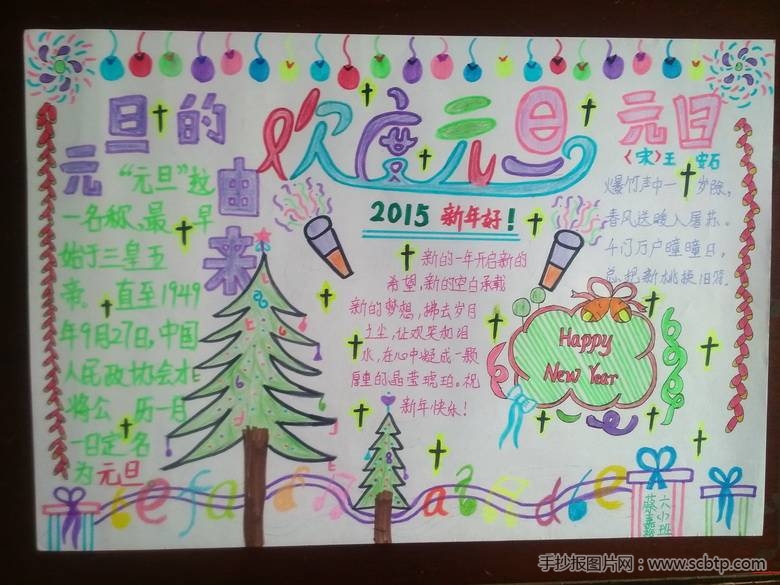 欢度元旦
元旦的由来
"元旦"这
一名称,最早
始于三皇五
帝,直至1949
年9月27日,中国
人民政协会才
将公历一月
一日定名
为元旦
2015 新年好!
新的一年开启新的
希望,新的空白承载
新的梦想,拂去岁月
土尘,让欢笑和泪
水,在心中凝成一颗
厚重的晶莹琥珀。祝
新年快乐!
元旦
(宋)王安石
爆竹声中一岁除,
春风送暖入屠苏。
千门万户曈曈日,
总把新桃换旧符。
Happy
New Year
六小班
手抄报图片网:www.scbtp.com